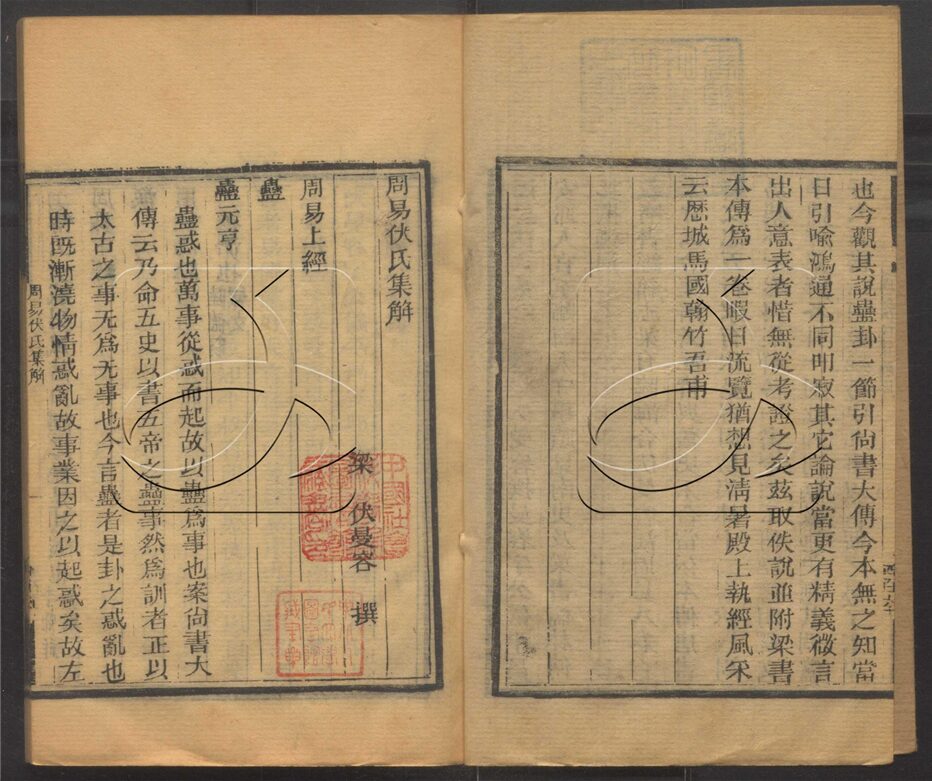 也今觀其說蠱卦一節引尙書大傳今本無之知當
日引喻鴻通不同叩寂其它論說當更有精義微言
出人意表者惜無從考證之矣茲取佚說並附梁書
本傳爲一卷暇日流覽猶想見淸暑殿上執經風采
云歴城馬國翰竹吾甫
周易伏氏集解
梁 伏曼容 撰
周易上經
蠱
蠱元亨
蠱惑也萬事從惑而起故以蠱爲事也案尙書大
傳云乃命五史以書五帝之蠱事然爲訓者正以
太古之事无爲无事也今言蠱者是卦之惑亂也
時既漸澆物情惑亂故事業因之以起惑矣故左
周易伏氏集解